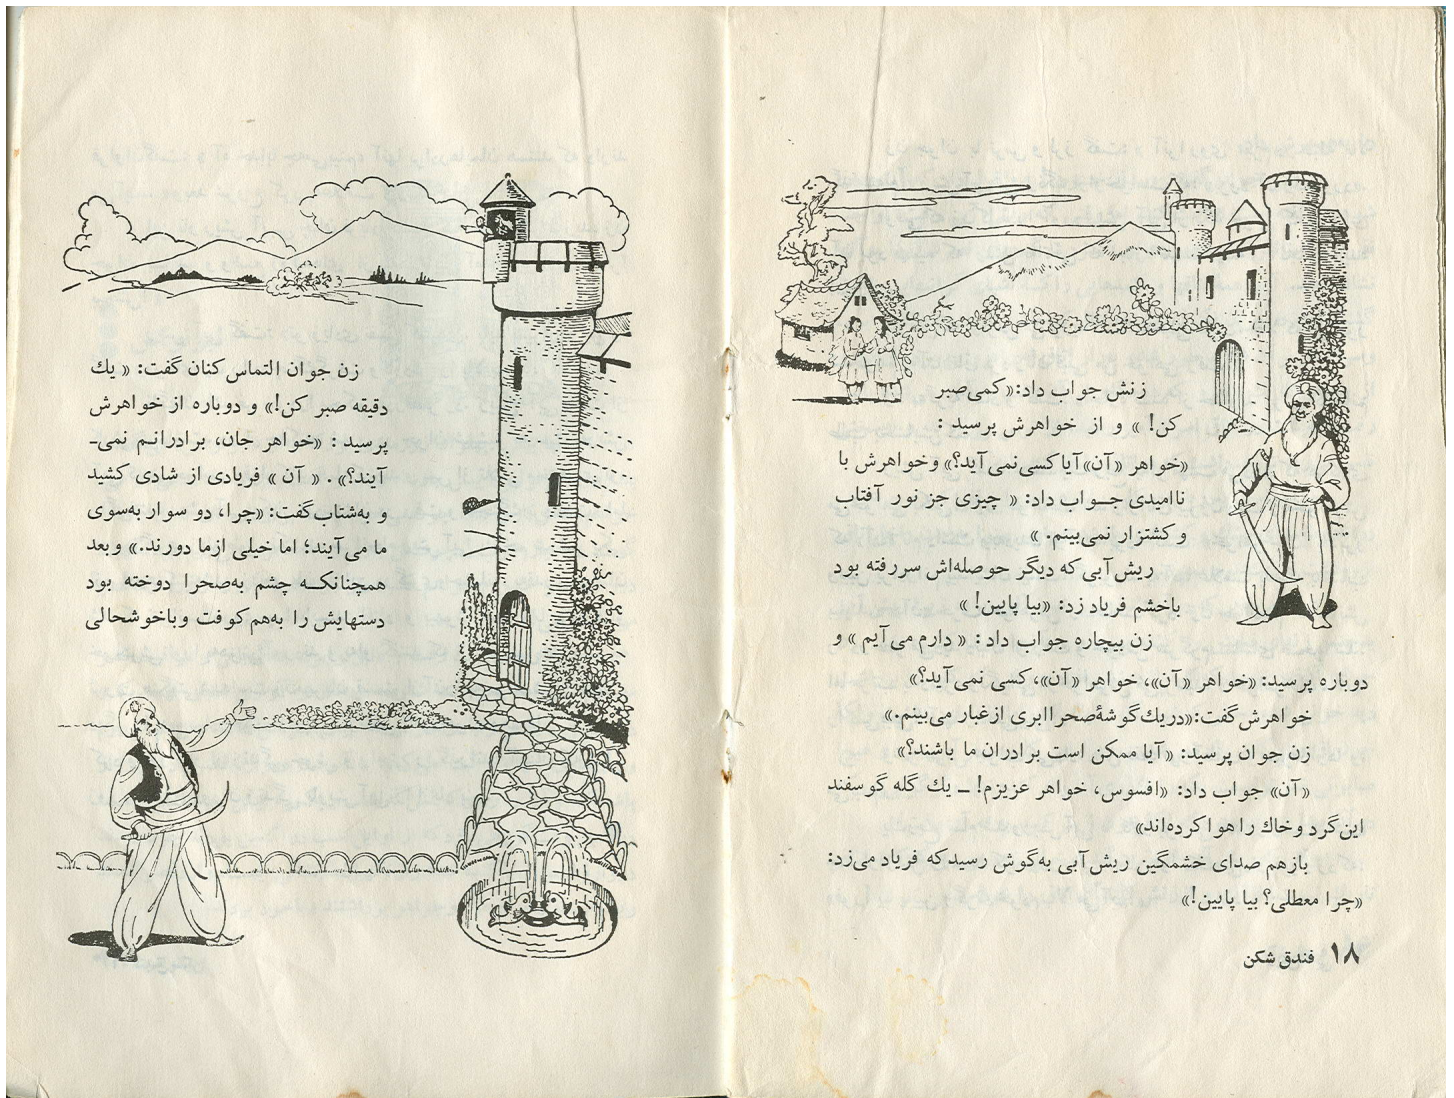 زنش جواب داد: «کمی صبر
کن! » و از خواهرش پرسید :
«خواهر «آن» آیا کسی نمی آید؟» وخواهرش با
ناامیدی جـواب داد: « چیزی جز نور آفتاب
و کشتزار نمی‌بینم. »
ریش‌آبی که دیگر حوصله‌اش سررفته بود
باخشم فریاد زد: «بیا پایین! »
زن بیچاره جواب داد : « دارم می‌آیم » و
دوباره پرسید: «خواهر «آن»، خواهر «آن»، کسی نمی‌آید؟»
خواهرش گفت: «دریك گوشهٔ صحرا ابری ازغبار می‌بینم.»
زن جوان پرسید: «آیا ممکن است برادران ما باشند؟»
«آن» جواب داد: «افسوس، خواهر عزیزم! ــ یك گله گوسفند
این‌گرد وخاك را هوا کرده‌اند»
بازهم صدای خشمگین ریش آبی به‌گوش رسیدکه فریاد می‌زد:
«چرا معطلی؟ بیا پایین!»
۱۸ فندق شکن
زن جوان التماس کنان گفت: « یك
دقیقه صبر کن!» و دوباره از خواهرش
پرسید : «خواهر جان، برادرانم نمی‌ـ
آیند؟» . « آن » فریادی از شادی کشید
و به‌شتاب‌گفت: «چرا، دو سوار به‌سوی
ما می‌آیند؛ اما خیلی ازما دورند.» وبعد
همچنانکـه چشم به‌صحرا دوخته بود
دستهایش را به‌هم‌کوفت وباخوشحالی